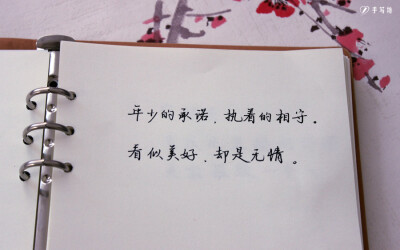 手写控
年少的承诺、执着的相守。
看似美好、却是无情。